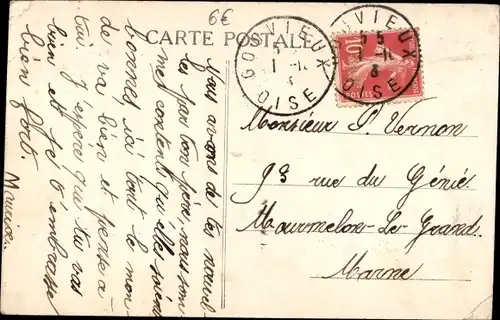 6€
CARTE POSTALE
GOUVIEUX
OISE
GOUVIEUX
OISE
10
POSTES
Nous avons de tes nouvel-
les par ton père, nous som
mes contents qu'elles soient
bonnes, ici tout le mon
de va bien et pense à
toi J'espère que tu vas
bien et je t'embrasse
bien fort.
Maurice.
Monsieur P. Vernon
93 rue du Génie.
Mourmelon-Le-Grand.
Marne